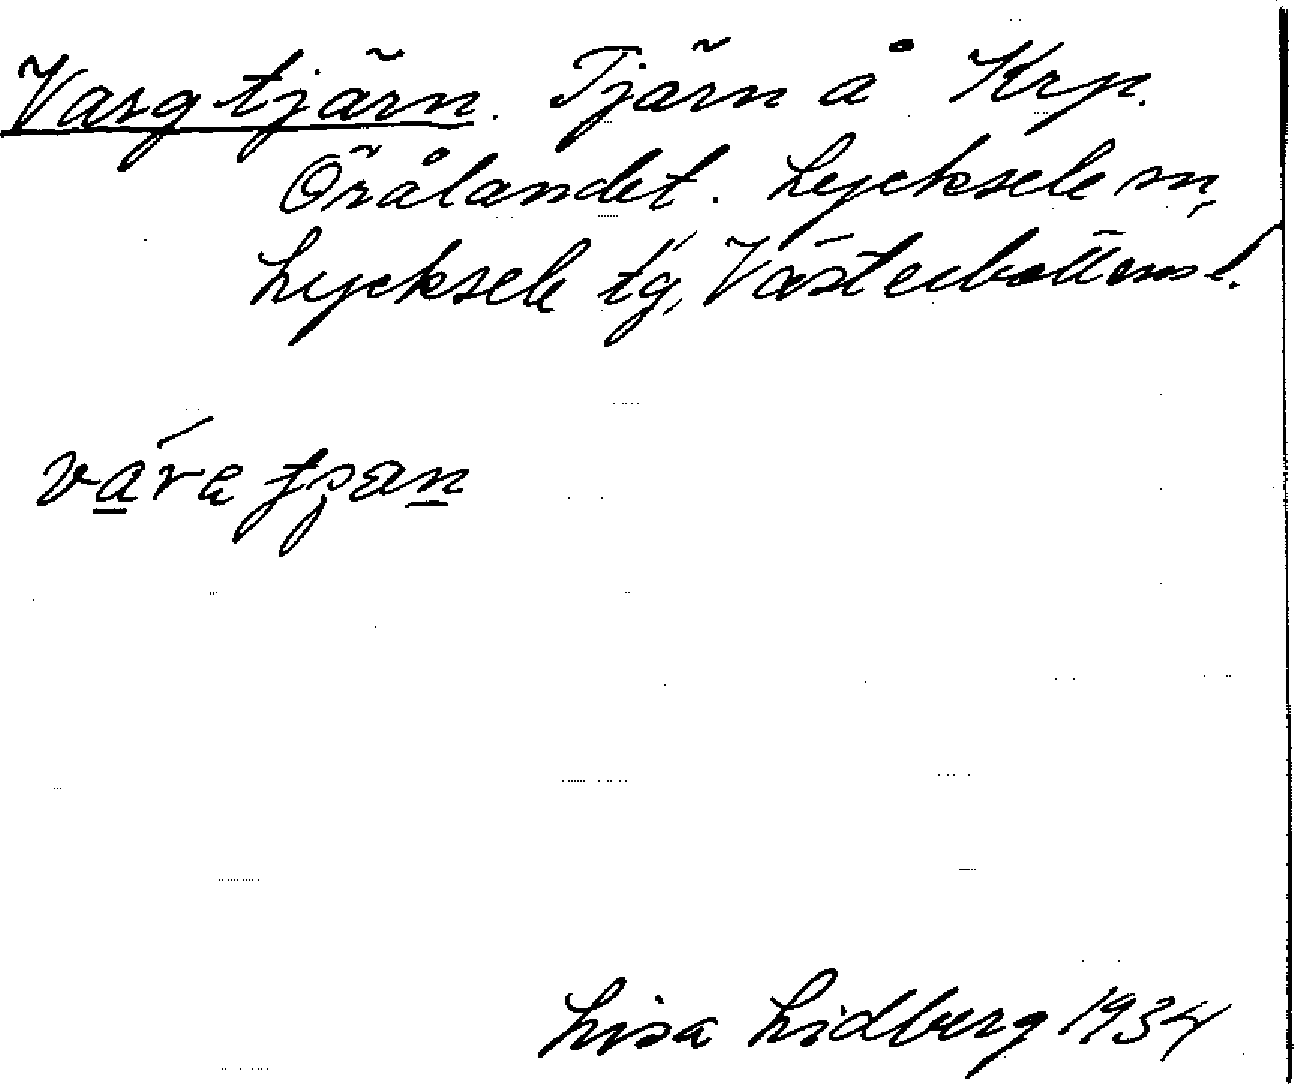 Vargtjärn. Tjärn å Krp.
Örålandet. Lycksele sn,
Lycksele tg, Västerbottens l.
Lisa Lidberg 1934